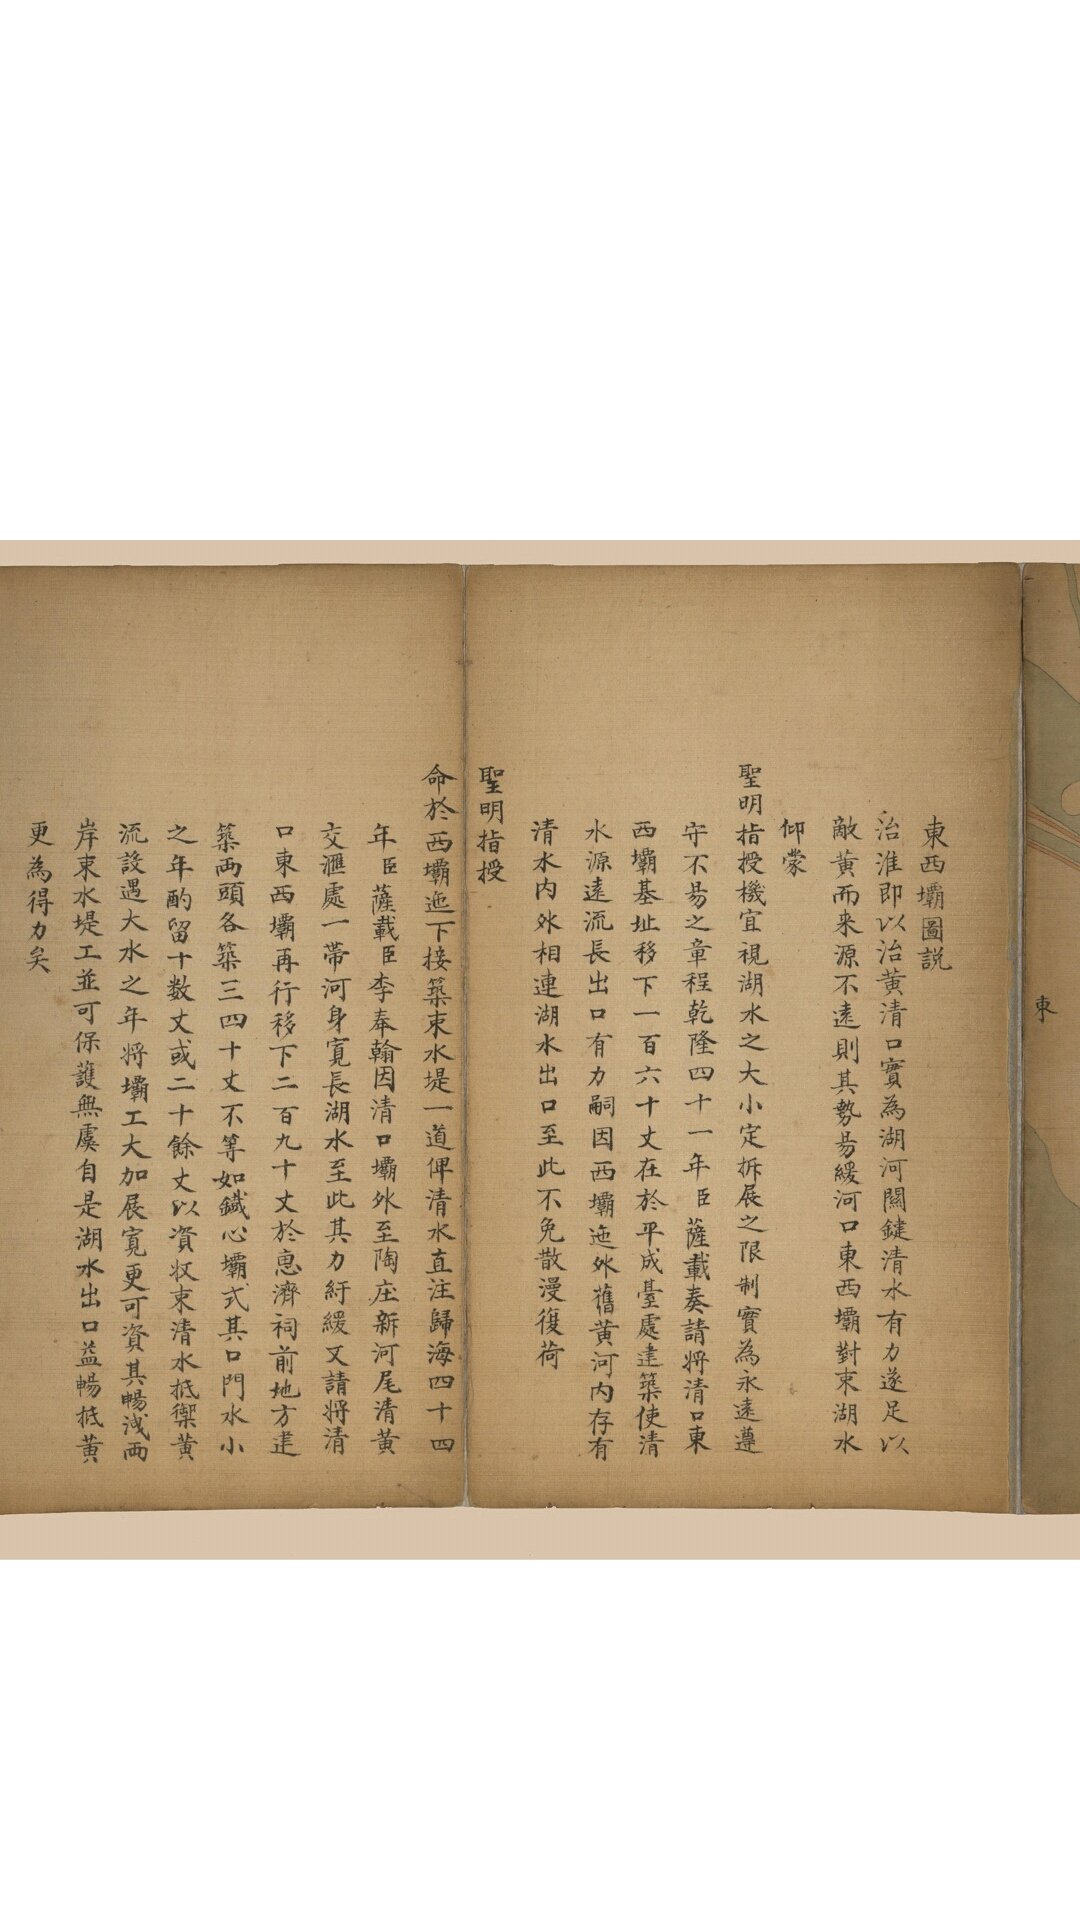 東
東西壩圖説
治淮即以治黃清口實為湖河關鍵清水有力遂足以
敵黃而来源不遠則其勢易緩河口東西壩對束湖水
仰蒙
聖明指授機宜視湖水之大小定拆展之限制實為永遠遵
守不易之章程乾隆四十一年臣薩載奏請將清口東
西壩基址移下一百六十丈在於平成臺處建築使清
水源遠流長出口有力嗣因西壩迤外舊黃河內存有
清水內外相連湖水出口至此不免散漫復荷
聖明指授
命於西壩迤下接築束水堤一道俾清水直注歸海四十四
年臣薩載臣李奉翰因清口壩外至陶庄新河尾清黃
交滙處一帶河身寬長湖水至此其力紆緩又請將清
口東西壩再行移下二百九十丈於惠濟祠前地方建
築兩頭各築三四十丈不等如鐵心壩式其口門水小
之年酌留十数丈或二十餘丈以資收束清水抵禦黃
流設遇大水之年將壩工大加展寬更可資其暢洩兩
岸束水堤工並可保護無虞自是湖水出口益暢抵黃
更為得力矣